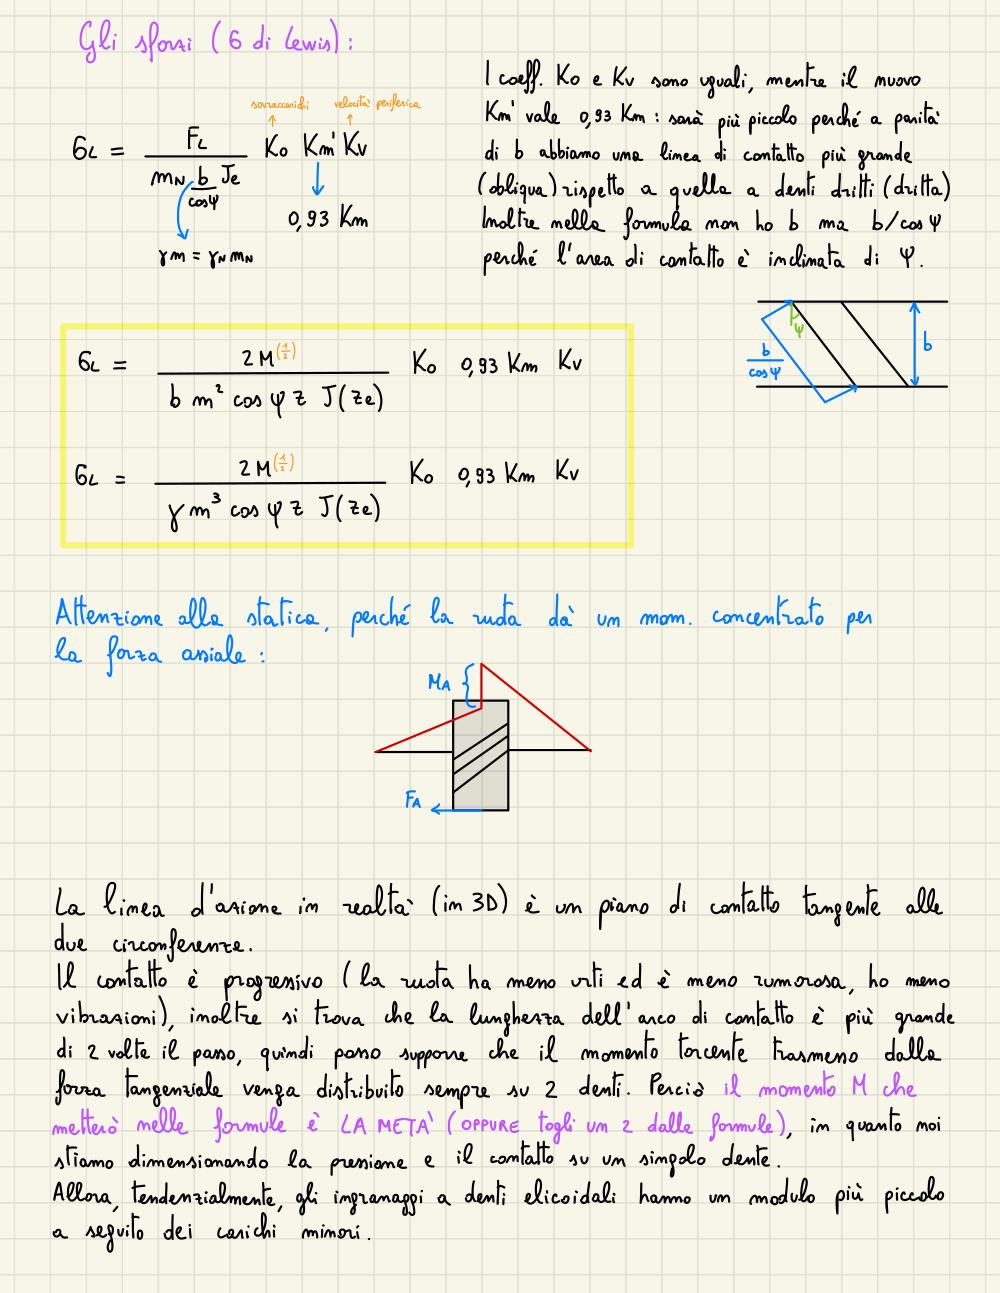 Gli sforzi (σ di Lewis):
sovraccarichi velocità periferica
σL = FL / (mN b/cosψ Je) Ko Km' Kv
0,93 Km
γm = γN mN
I coeff. Ko e Kv sono uguali, mentre il nuovo
Km' vale 0,93 Km : sarà più piccolo perché a parità
di b abbiamo una linea di contatto più grande
(obliqua) rispetto a quella a denti dritti (dritta)
Inoltre nella formula non ho b ma b/cosψ
perché l'area di contatto è inclinata di ψ.
ψ
b
b/cosψ
σL = 2M(1/2) / (b m² cosψ z J(ze)) Ko 0,93 Km Kv
σL = 2M(1/2) / (γ m³ cosψ z J(ze)) Ko 0,93 Km Kv
Attenzione alla statica, perché la ruota dà un mom. concentrato per
la forza assiale :
MA
FA
La linea d'azione in realtà (in 3D) è un piano di contatto tangente alle
due circonferenze.
Il contatto è progressivo (la ruota ha meno urti ed è meno rumorosa, ho meno
vibrazioni), inoltre si trova che la lunghezza dell'arco di contatto è più grande
di 2 volte il passo, quindi posso supporre che il momento torcente trasmesso dalla
forza tangenziale venga distribuito sempre su 2 denti. Perciò il momento M che
metterò nelle formule è LA METÀ (OPPURE togli un 2 dalle formule), in quanto noi
stiamo dimensionando la pressione e il contatto su un singolo dente.
Allora, tendenzialmente, gli ingranaggi a denti elicoidali hanno un modulo più piccolo
a seguito dei carichi minori.